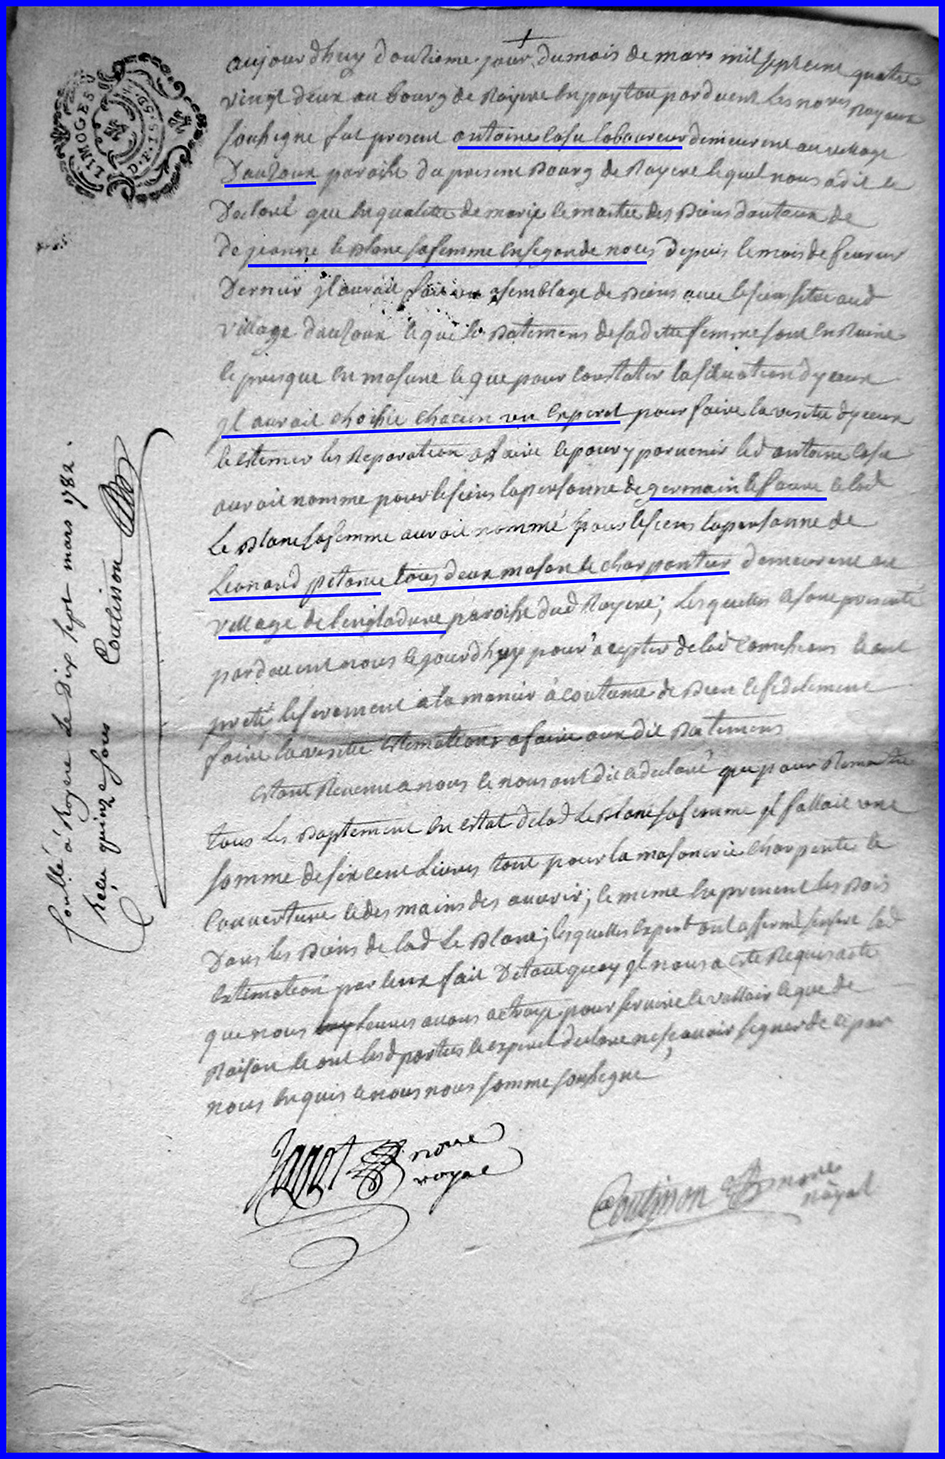 LIMOGES
D.F.I.S
aujourdhuy douzieme jour du mois de mars mil sept cent quatre
vingt deux au bourg de Royere en poytou par devent les nores royaux
soubsigne fut present antoine lasu laboureur demeurent au village
Dauzoux paroisse du present Bourg de Royere lequel nous a dit e
Declaré que en qualitte de mary e maitre des Biens dautaux de
de jeanne le Blanc sa femme en segonde noces depuis le mois de fevrier
Dernier jl auroit fait un asemblage de Biens avec le sien situe aud
village dauzoux e que les Batimens de sa ditte femme sont en Ruine
e presque en masure e que pour constater la situation dyceux
jl auroit choisie chacun un expert pour faire la visitte dyceux
e estimer les Reparation a faire e pour y parvenir led antoine lasu
auroit nomme pour le sien la personne de germain lefaure e lad
Le Blanc sa femme auroit nommé pour le sien la personne de
Leonard petane tous deux mason e charpantier demeurent au
village de lengladure paroche dud Royere; lesquelles e sont presenté
pardevent nous e jourdhuy pour acepter de lad comision e ont
preté le serement a la manier acoutume de Bien e fidelement
faire la visitte estimations a faire aux dit Batimens
estant Revenu a nous e nous ont dit e declaré que pour Remettre
tous les Baptiment en estat de lad le Blanc sa femme jl fallait une
somme de six cent Livres tout pour la masonerie charpente e
couverture e des mains des ouvrir; e meme en prenent les Bois
Dans les Biens de lad Le Blanc; lesquelles expert ont afferme sinsere lad
estimation par eux fait De tout quoy jl nous a este Requis acte
que nous leurs avons octroye pour servir e valloir e que de
Raison e ont lesd parties e expert declare ne sçavoir signer de ce par
nous enquis e nous nous somme soubsigne
Janot nore
royal
Coulisson nore
Royal
Conllé à Royere Le Dix sept mars 1782.
Reçu quinze sous Coulisson